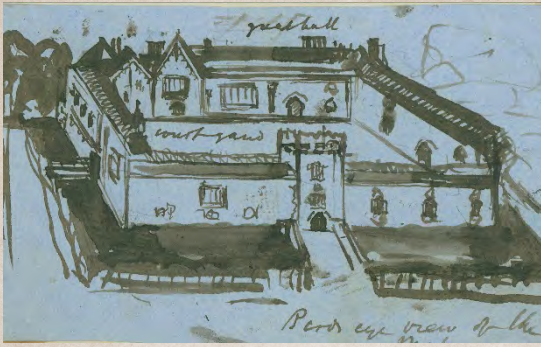 great hall
court yard
Birds eye view of the